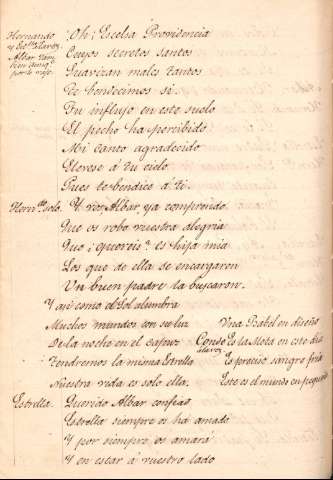 Hernando
y Estrella
Albar tam
bien aunq.e
por lo bajo
Oh! Escelsa Providencia
Cuyos secretos santos
Suavizan males tantos
Te bendecimos si.
Tu influjo en este suelo
El pecho ha percibido
Mi canto agradecido
Elevese á tu cielo
Pues te bendice á ti.
Hern.do solo. Y vos, Albar, ya comprendo
Que os roba vuestra alegria
Que ¿quereis? es hija mia
Los que de ella se encargaron
Un buen padre la buscaron.
Y asi como el Sol alumbra
Muchos mundos con su luz
De la noche en el capuz
Tendremos la misma Estrella
Nuestra vida es solo ella.
Una Babel en diseño
Es la Mota en este dia
Es preciso sangre fria
Este es el mundo en pequeño
Estrella. Querido Albar confiad
Estrella siempre os ha amado
Y por siempre os amará
Y en estar á vuestro lado